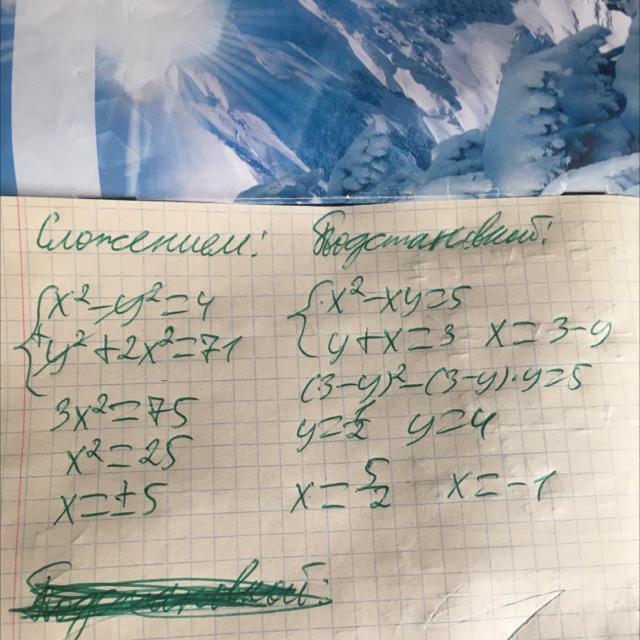 Сложением:
x²-y²=4
y²+2x²=71
3x²=75
x²=25
x=±5
Подстановкой:
x²-xy=5
y+x=3 x=3-y
(3-y)²-(3-y)·y=5
y=½ y=4
x=5/2 x=-1